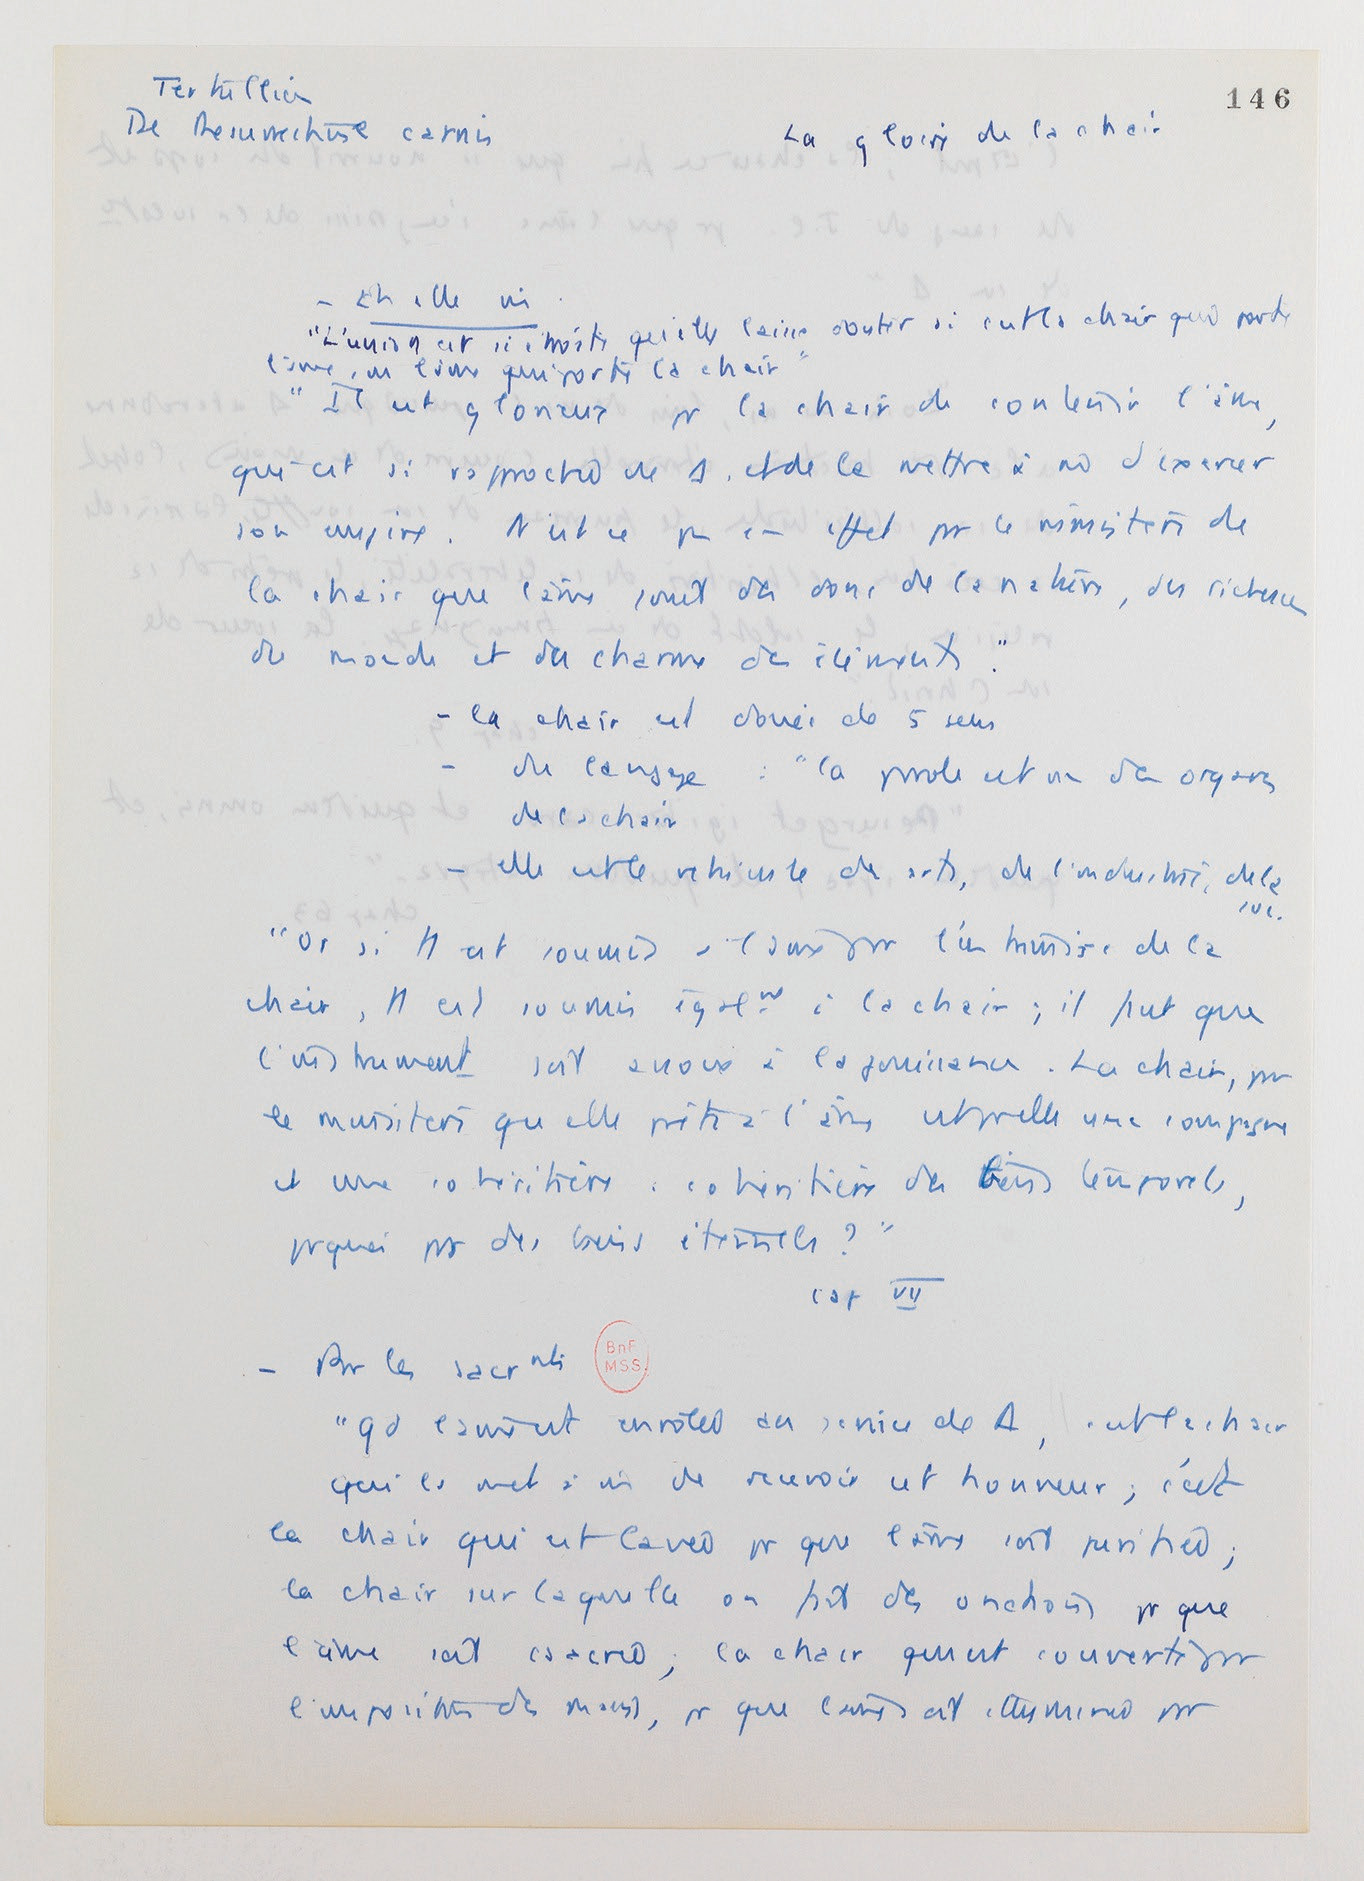 146
Tertullien
De Resurrectione carnis
La gloire de la chair
- En elle m̄
"L'union est si étroite qu'elle laisse douter si c'est la chair qui porte
l'âme, ou l'âme qui porte la chair"
"Il est glorieux pr la chair de contenir l'âme,
qui est si rapprochée de Δ, et de la mettre à m̄ d'exercer
son empire. N'est ce pas en effet par le ministère de
la chair que l'âme jouit des dons de la nature, des richesses
du monde et du charme des éléments."
- la chair est douée de 5 sens
- du langage : "la parole est un des organes
de la chair
- elle est le véhicule des arts, de l'industrie, de la
"Or si tt est soumis à l'âme par l'entremise de la
chair, tt est soumis égalnt à la chair ; il faut que
l'instrument soit associé à la jouissance. La chair, par
le ministère qu'elle prête à l'âme est pr elle une compagne
et une cohéritière : cohéritière des biens temporels,
prquoi pas des biens éternels ?"
cap VII
- Par les sacrnts
BnF
MSS
"Qd l'âme est enrôlée au service de Δ, c'est la chair
qui la met à m̄ de recevoir cet honneur ; c'est
la chair qui est lavée pr que l'âme soit purifiée ;
la chair sur laquelle on fait des onctions pr que
l'âme soit csacrée ; la chair qui est couverte par
l'imposition des mains, pr que l'âme soit illuminée par